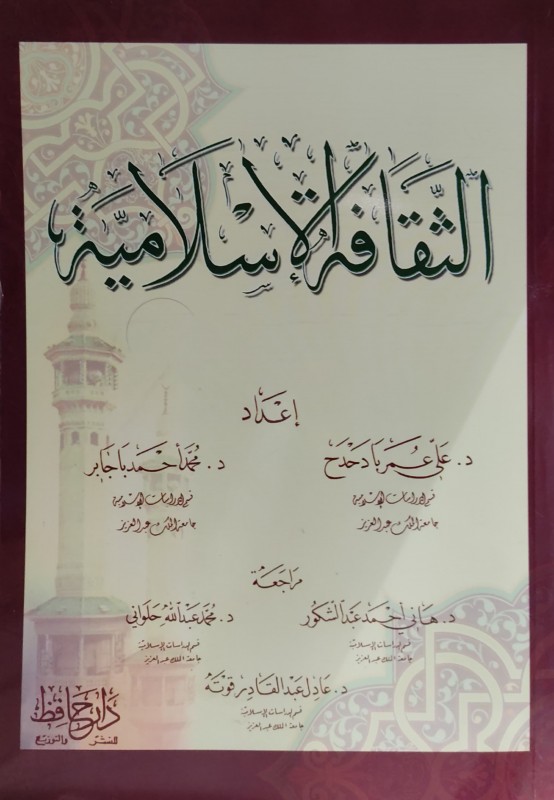 الثقافة الإسلامية
إعداد
د. علي عمر بادحدح
قسم الدراسات الإسلامية
جامعة الملك عبدالعزيز
د. محمد أحمد باجابر
قسم الدراسات الإسلامية
جامعة الملك عبدالعزيز
مراجعة
د. هاني أحمد عبدالشكور
قسم الدراسات الإسلامية
جامعة الملك عبدالعزيز
د. محمد عبدالله حلواني
قسم الدراسات الإسلامية
جامعة الملك عبدالعزيز
د. عادل عبدالقادر قوته
قسم الدراسات الإسلامية
جامعة الملك عبدالعزيز
دار حافظ
للنشر والتوزيع